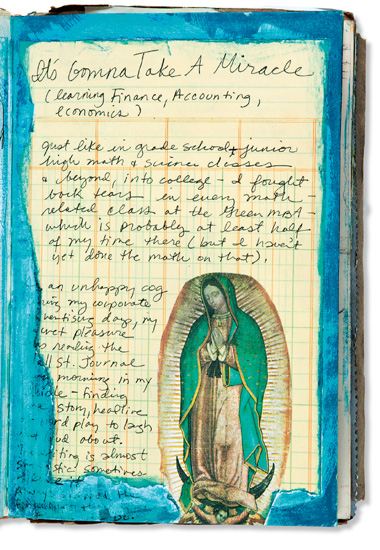 It's Gonna Take A Miracle
(learning Finance, Accounting,
economics)
Just like in grade school, junior
high math & science classes
& beyond, into college - I fought
back tears in every math-
related class at the Green MBA -
which is probably at least half
of my time there (but I haven't
yet done the math on that).
an unhappy cog
my corporate
days, my
pleasure
reading the
St. Journal
morning in my
finding
story, headline
play to laugh
about.
is almost
sometimes
it